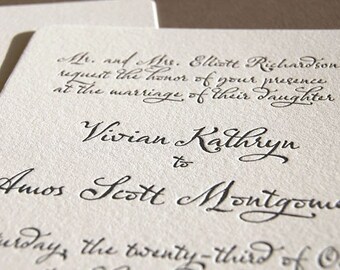 Mr. and Mrs. Elliott Richardson
request the honor of your presence
at the marriage of their daughter
Vivian Kathryn
to
Amos Scott Montgome
turday, the twenty-third of O